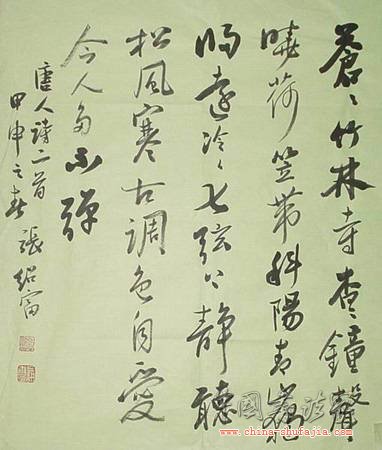 蒼々竹林寺杳々鐘聲
晚荷笠帶斜陽青山獨
歸遠泠々七弦上靜聽
松風寒古調雖自愛
今人多不彈
唐人詩二首
甲申之春 張紹富
www.china-shufajia.com